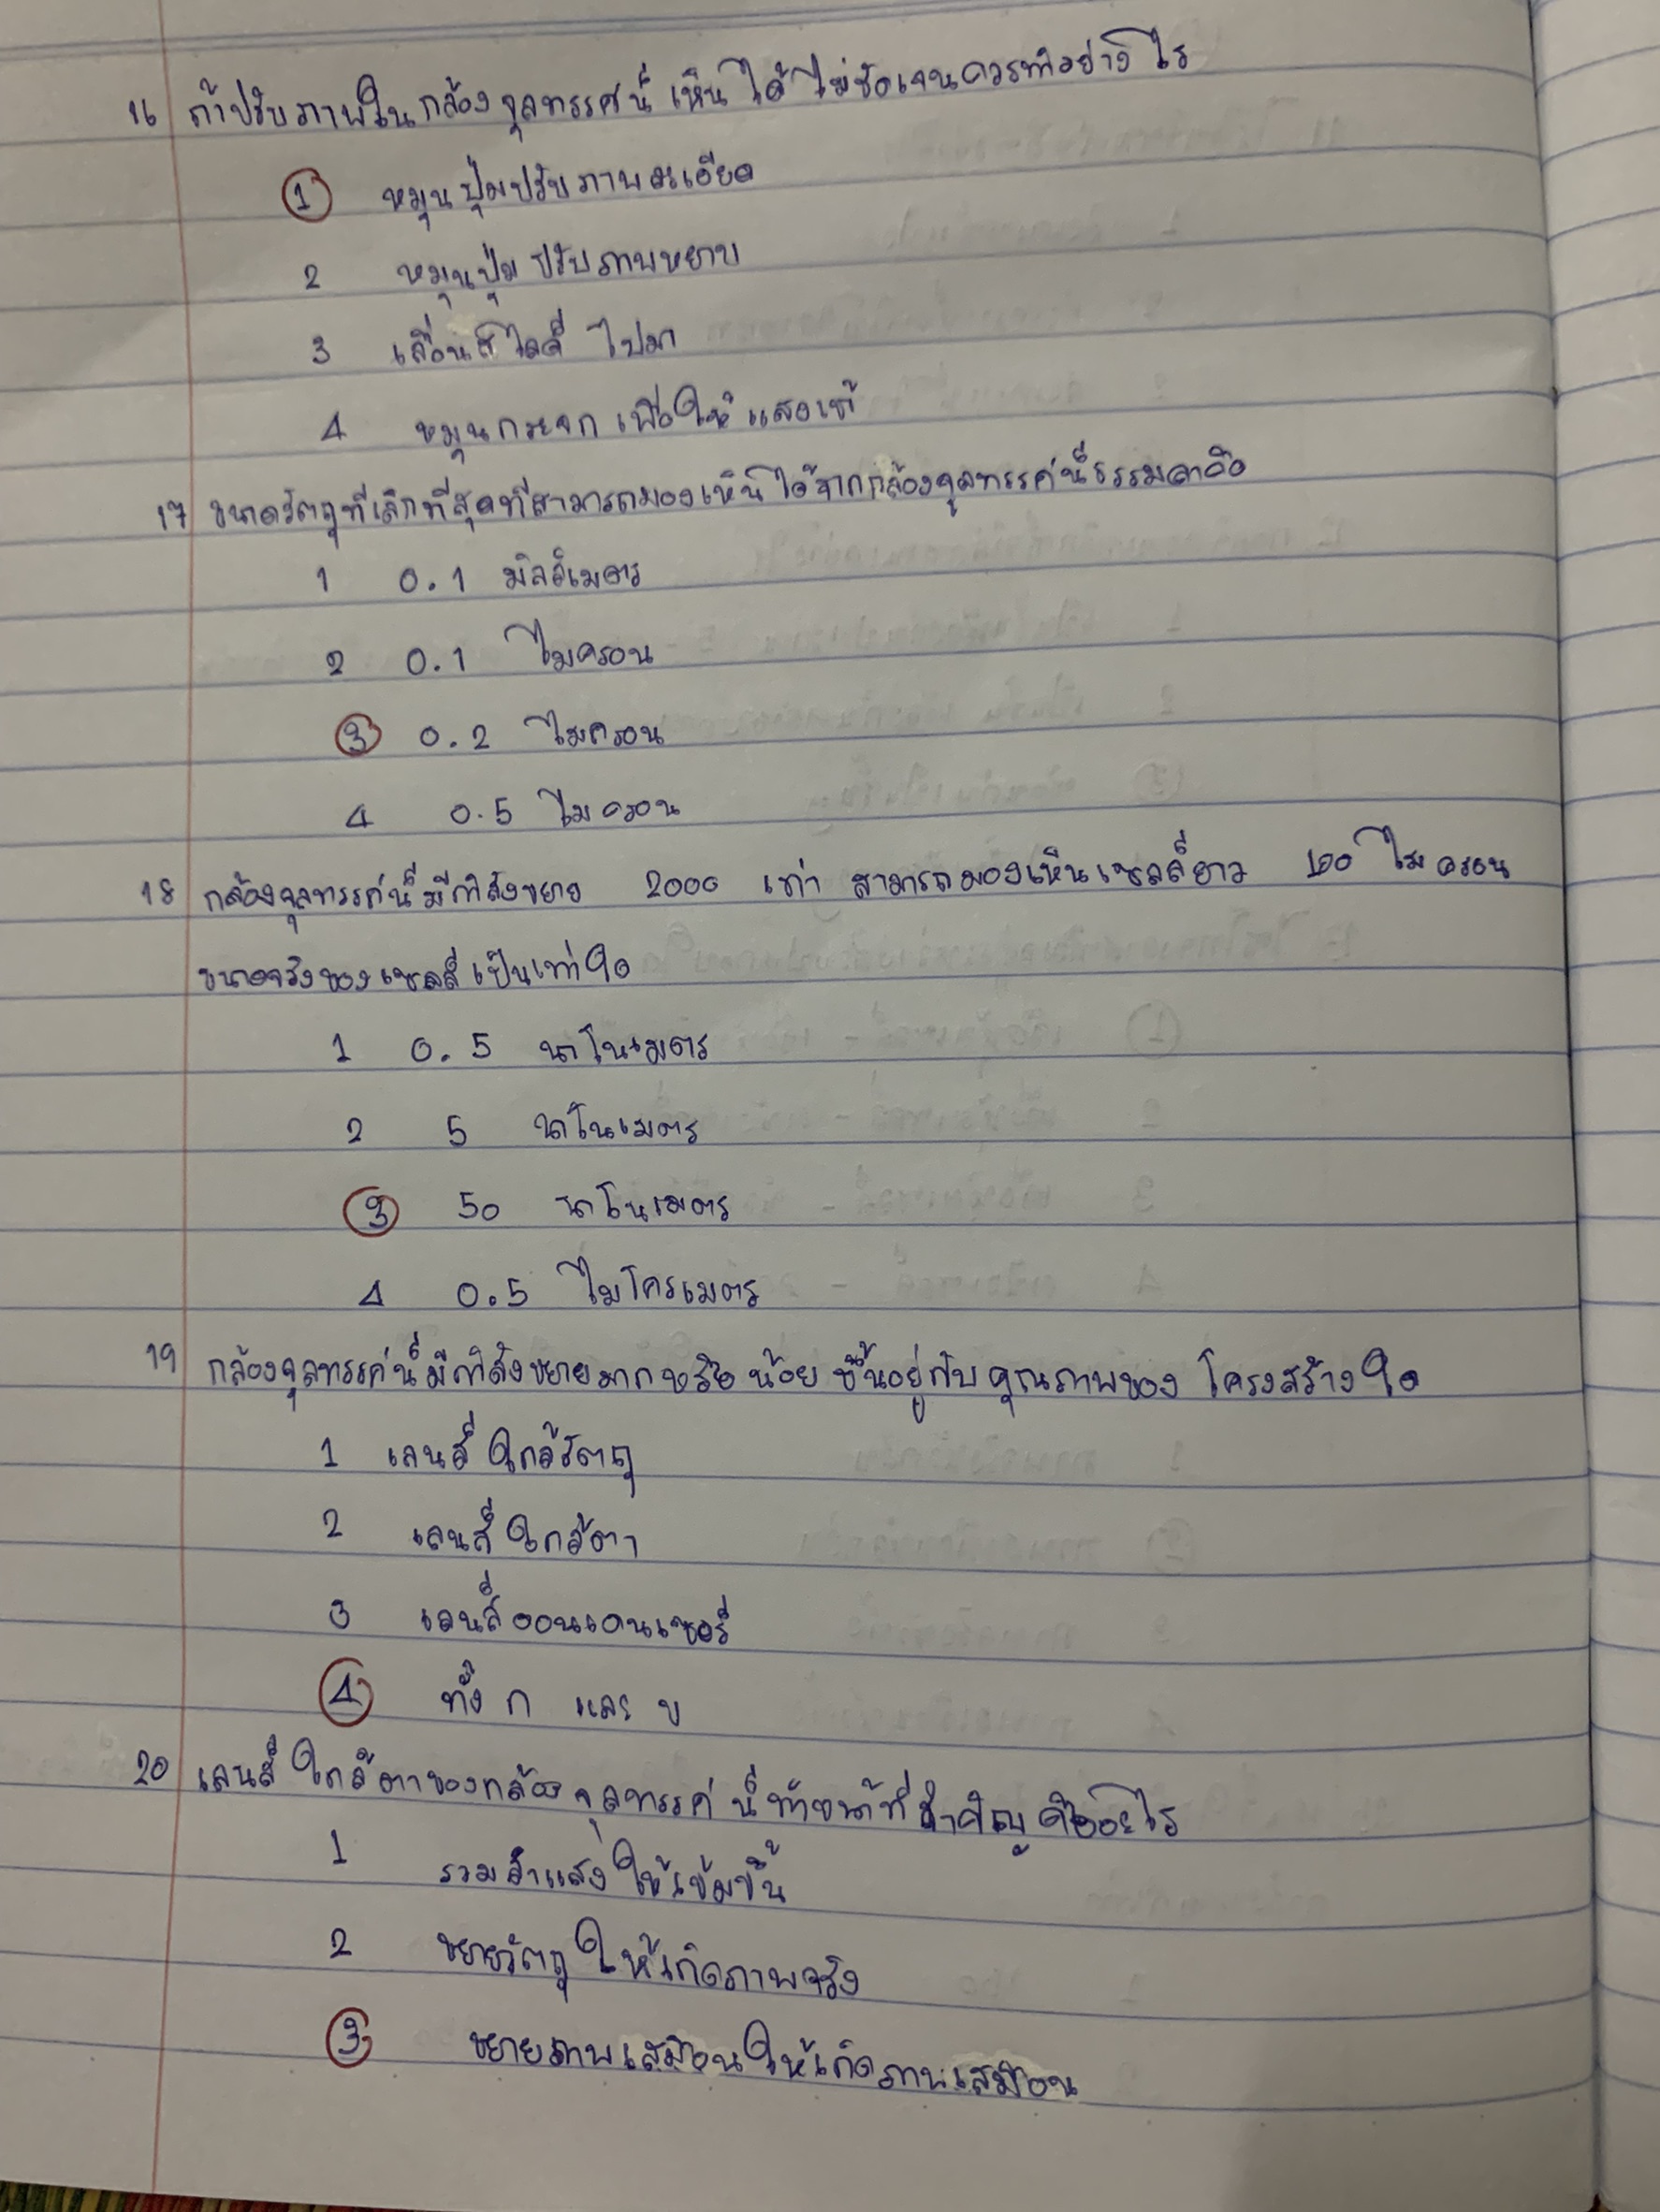 16 ถ้าปรับภาพในกล้องจุลทรรศน์ เห็นได้ไม่ชัดเจนควรทำอย่างไร
1 หมุนปุ่มปรับภาพละเอียด
2 หมุนปุ่มปรับภาพหยาบ
3 เลื่อนสไลด์ ไปมา
4 หมุนกระจก เพื่อให้แสงเข้
17 ขนาดวัตถุที่เล็กที่สุดที่สามารถมองเห็นได้จากกล้องจุลทรรศน์ธรรมดาคือ
1 0.1 มิลลิเมตร
2 0.1 ไมครอน
3 0.2 ไมครอน
4 0.5 ไมครอน
18 กล้องจุลทรรศน์มีกำลังขยาย 2000 เท่า สามารถมองเห็นเซลล์ยาว 100 ไมครอน
ขนาดจริงของเซลล์เป็นเท่าใด
1 0.5 นาโนเมตร
2 5 นาโนเมตร
3 50 นาโนเมตร
4 0.5 ไมโครเมตร
19 กล้องจุลทรรศน์มีกำลังขยายมากหรือน้อย ขึ้นอยู่กับคุณภาพของ โครงสร้างใด
1 เลนส์ใกล้วัตถุ
2 เลนส์ใกล้ตา
3 เลนส์คอนเดนเซอร์
4 ทั้ง ก และ ข
20 เลนส์ใกล้ตาของกล้องจุลทรรศน์ทำหน้าที่สำคัญคืออะไร
1 รวมลำแสงให้เข้มขึ้น
2 ขยายวัตถุให้เกิดภาพจริง
3 ขยายภาพเสมือนให้เกิดภาพเสมือน